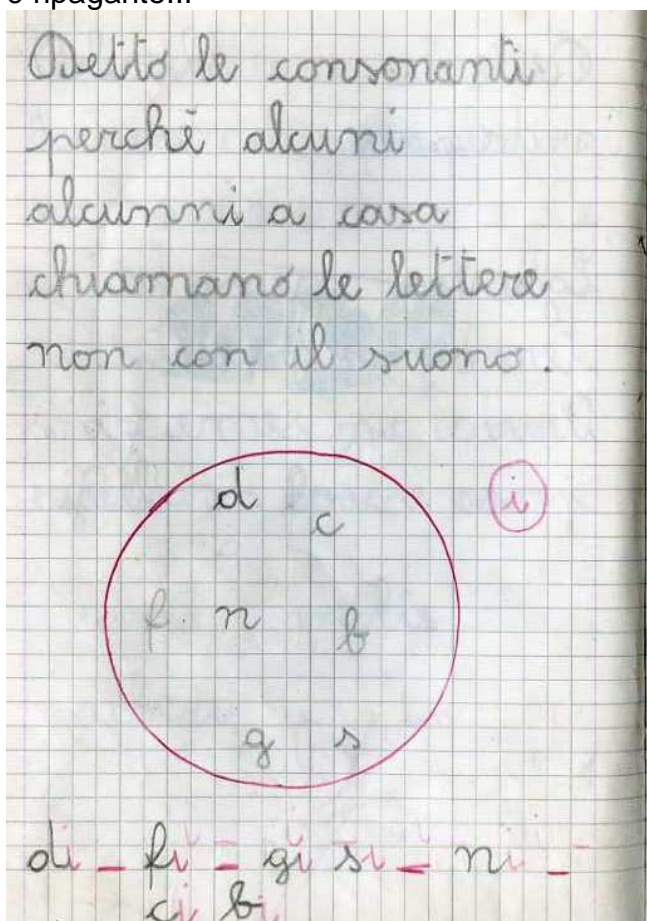 e ripagante!!!
Detto le consonanti
perché alcuni
alunni a casa
chiamano le lettere
non con il suono.
d
c
i
f. n b
g s
di - fi - gi si - ni -
ci bi